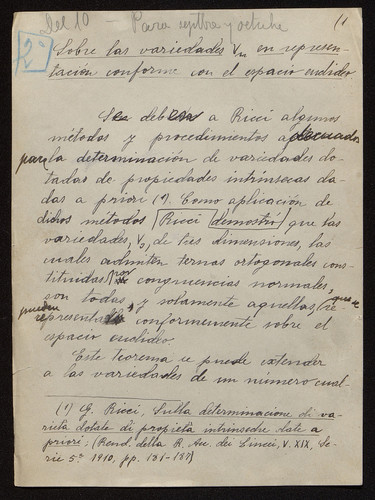 Del 10 - Para septbre y octubre
(1
2º
Sobre las variedades Vn en represen-
tación conforme con el espacio euclideo.
Se deben a Ricci algunos
métodos y procedimientos adecuados
para la determinación de variedades do-
tadas de propiedades intrínsecas da-
das a priori (1). Como aplicación de
dichos métodos Ricci demostró que las
variedades, V3, de tres dimensiones, las
cuales admiten ternas ortogonales cons-
tituidas por congruencias normales,
son todas, y solamente aquellas, que se
pueden representar conformemente sobre el
espacio euclideo.
Este teorema se puede extender
a las variedades de un número cual-
(1) G. Ricci, Sulla determinazione di va-
rietà dotate di proprietà intrinseche date a
priori; (Rend. della R. Acc. dei Lincei, V. XIX, Se-
rie 5ª 1910, pp. 181-187)